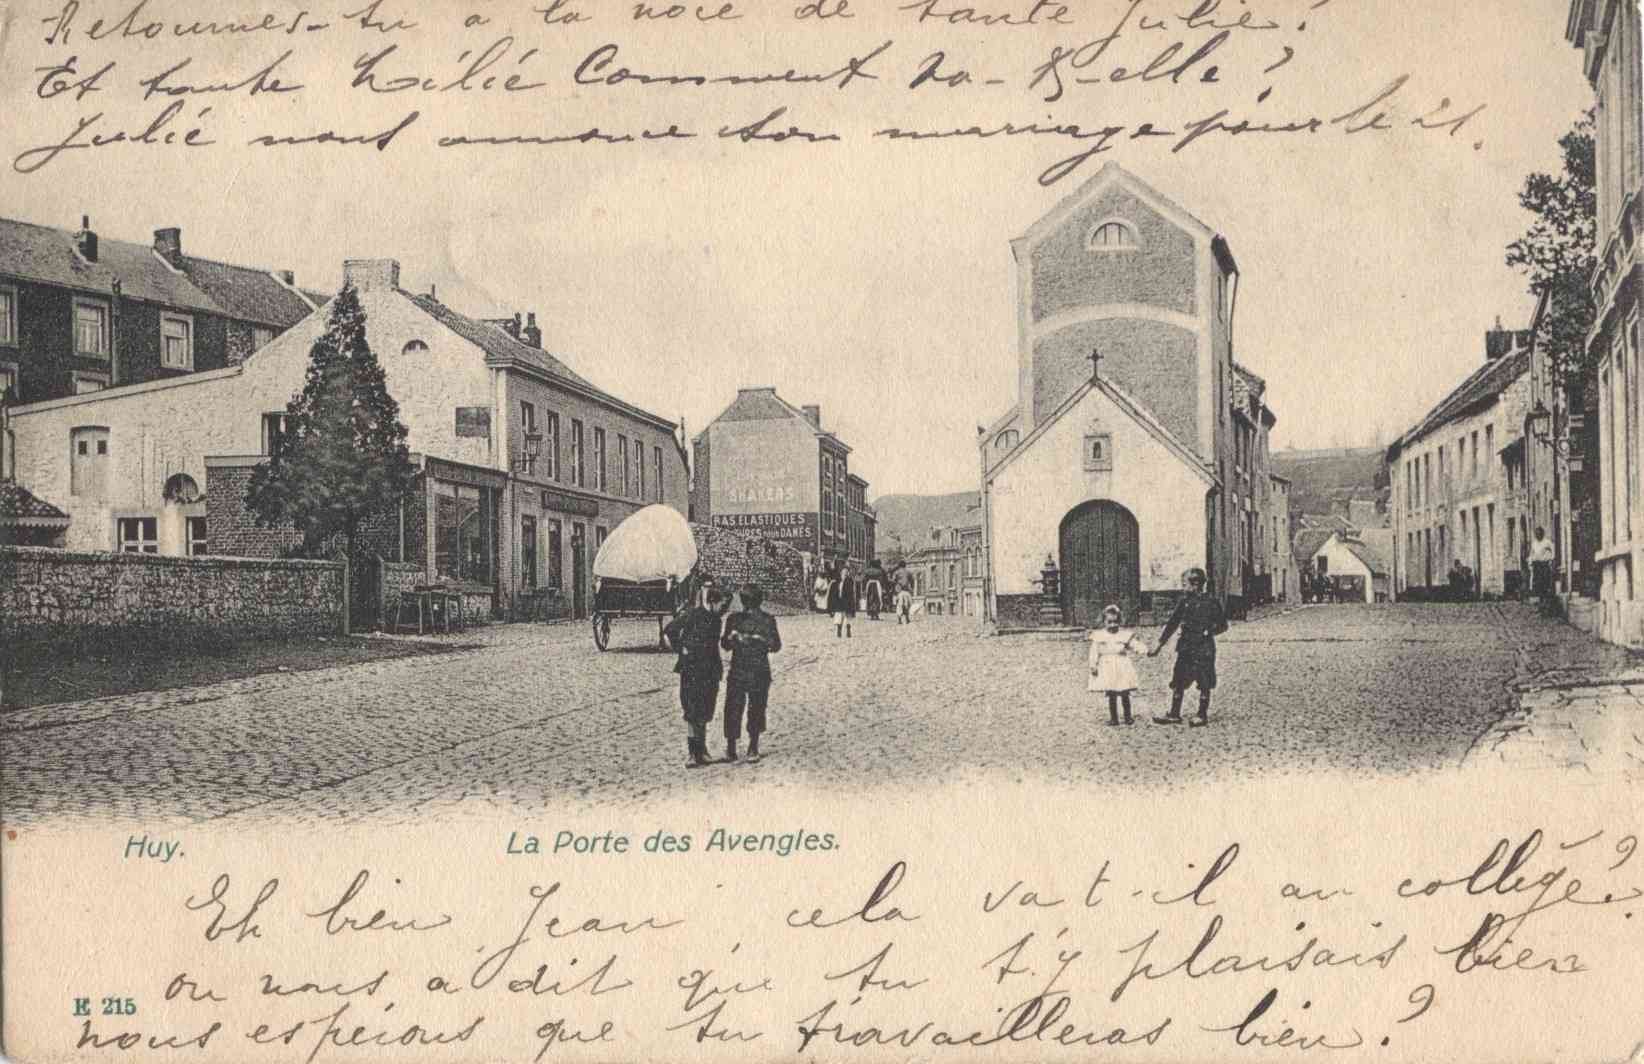 Retournes-tu a la noce de tante Julie?
Et tante Lélié Comment va-t-elle?
Julié nous annonce son mariage pour le 21.
SHAKERS
BAS ELASTIQUES
POUR DAMES
Huy.
La Porte des Avengles.
Eh bien Jean, cela va t-il au collège?
on nous a dit que tu t'y plaisais bien
E 215
nous espérons que tu travailleras bien?